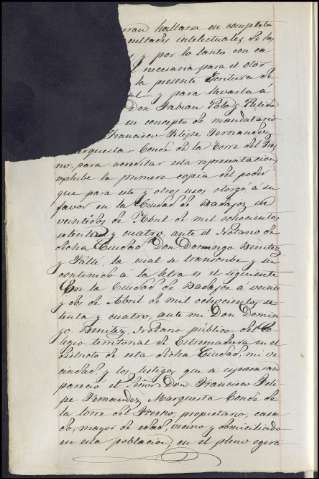 hallara en completa
facultades intelectuales de la
y por lo tanto con ca
necesaria para el otor
la presente Escritura de
y para llevarla a
Don Fabian
en concepto de mandatario
Francisco Felipe Fernandez
Marqueta Conde de la Torre del Fres
no, para acreditar esta representacion
exhibe la primera copia del poder
que para este y otros usos otorgó a su
favor en la Ciudad de Badajoz en
veintidos de Abril de mil ochocientos
setenta y cuatro ante el Notario de
dicha Ciudad Don Domingo Benitez
y la cual se transcribe y su
contenido a la letra es el siguiente
En la Ciudad de Badajoz a veinte
y dos de Abril de mil ochocientos se
tenta y cuatro, ante mi Don Domin
go Benitez, Notario público del Co
legio territorial de Estremadura en el
Distrito de esta dicha Ciudad, mi ve
cindad y los testigos que a
parecio el Señor Don Francisco Feli
pe Fernandez Marqueta Conde de
la Torre del Fresno, propietario, casa
do, mayor de edad, vecino y domiciliado
en esta poblacion, en el pleno egerci